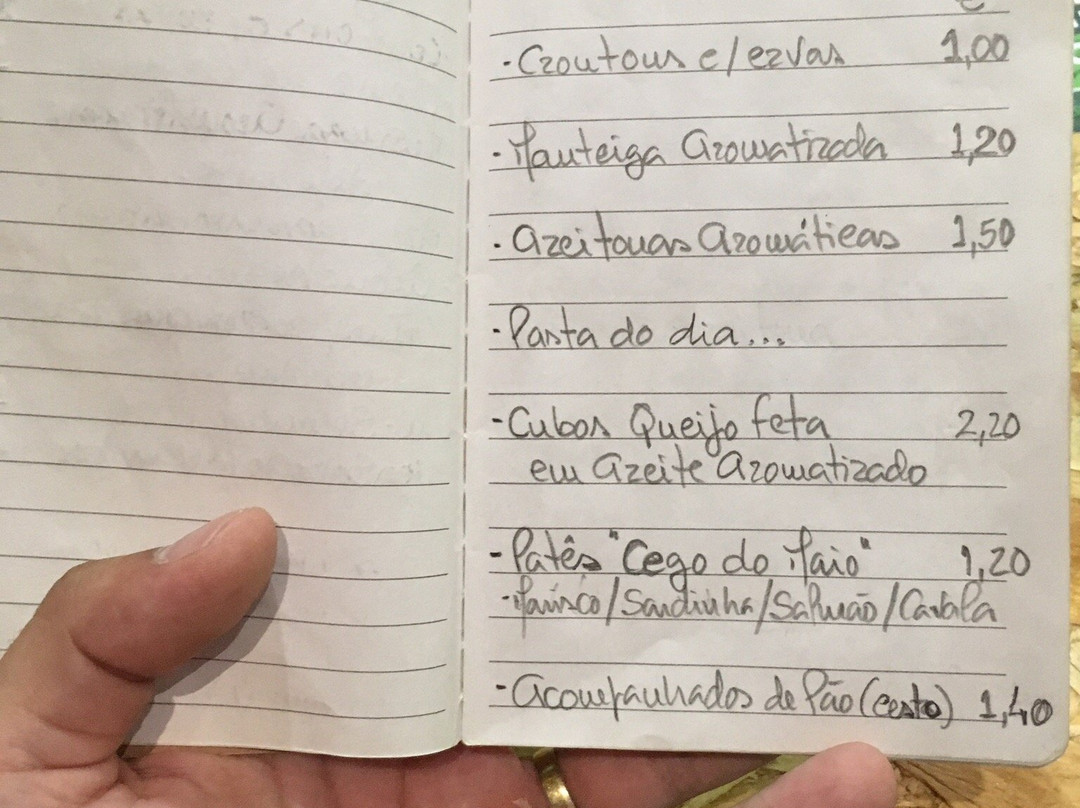 €
· Croutons c/ ervas 1,00
· Manteiga Aromatizada 1,20
· Azeitonas Aromáticas 1,50
· Pasta do dia...
- Cubos Queijo feta 2,20
em Azeite Aromatizado
- Patês "Cego do Maio" 1,20
- Marisco/Sardinha/Salmão/Cavala
- Acompanhados de Pão (cesto) 1,40